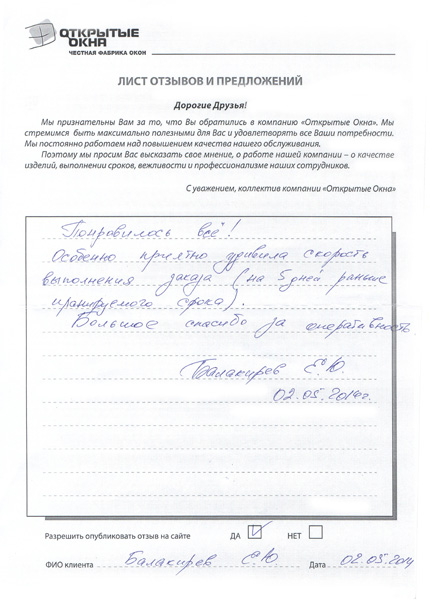 ОТКРЫТЫЕ
ОКНА
ЧЕСТНАЯ ФАБРИКА ОКОН
ЛИСТ ОТЗЫВОВ И ПРЕДЛОЖЕНИЙ
Дорогие Друзья!
Мы признательны Вам за то, что Вы обратились в компанию «Открытые Окна». Мы
стремимся быть максимально полезными для Вас и удовлетворять все Ваши потребности.
Мы постоянно работаем над повышением качества нашего обслуживания.
Поэтому мы просим Вас высказать свое мнение, о работе нашей компании – о качестве
изделий, выполнении сроков, вежливости и профессионализме наших сотрудников.
С уважением, коллектив компании «Открытые Окна»
Понравилось всё!
Особенно приятно удивила скорость
выполнения заказа (на 5 дней раньше
планируемого срока).
Большое спасибо за оперативность
Балакирев Е.Ю.
02.05.2014г.
Разрешить опубликовать отзыв на сайте ДА НЕТ
ФИО клиента Балакирев Е.Ю. Дата 02.05.2014